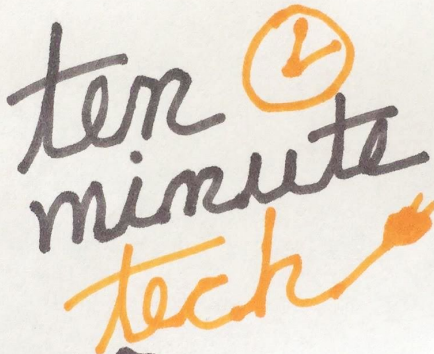 ten
minute
tech